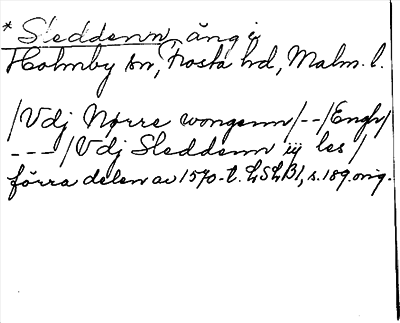 * Sleddenn äng i
Holmby sn, Frosta hd, Malm. l.
/Vdj Nørre wongenn/--/Engh/
---/Vdj Sleddenn iij les/
förra delen av 1570-t. LSLB1, s. 189. orig.